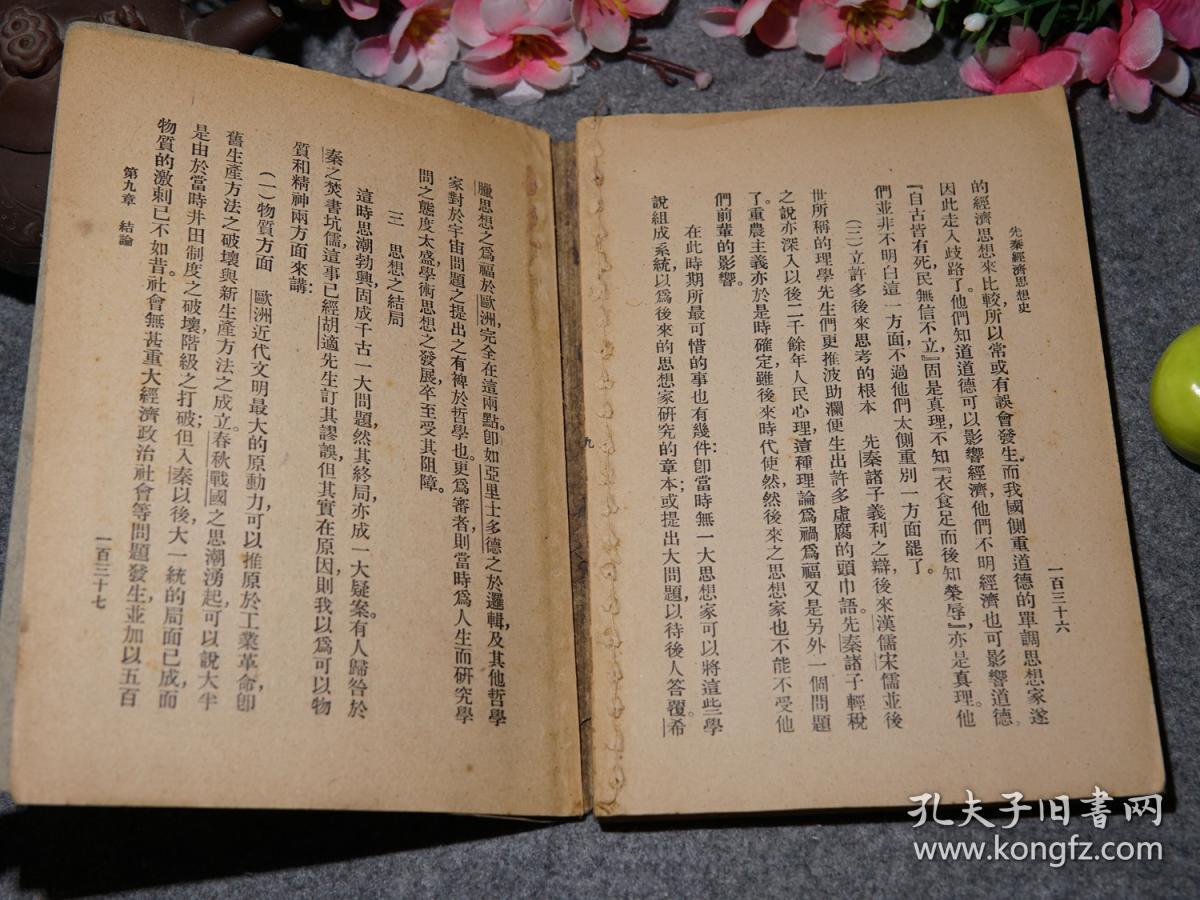 先秦經濟思想史
一百三十六
的經濟思想來比較所以常或有誤會發生而我國側重道德的單調思想家遂
因此走入歧路了他們知道道德可以影響經濟他們不明經濟也可影響道德
『自古皆有死民無信不立』固是真理不知『衣食足而後知榮辱』亦是真理。他
們並非不明白這一方面不過他們太側重別一方面罷了。
(三)立許多後來思考的根本　先秦諸子義利之辯後來漢儒宋儒並後
世所稱的理學先生們更推波助瀾便生出許多虛腐的頭巾語。先秦諸子輕稅
之說亦深入以後二千餘年人民心理這種理論爲禍爲福又是另外一個問題
了。重農主義亦於是時確定雖後來時代使然然後來之思想家也不能不受他
們前輩的影響。
在此時期所最可惜的事也有幾件：卽當時無一大思想家可以將這些學
說組成系統以爲後來的思想家研究的章本；或提出大問題以待後人答覆。希
九
臘思想之爲福於歐洲，完全在這兩點卽如亞里士多德之於邏輯，及其他哲學
家對於宇宙問題之提出之有裨於哲學也。更爲審者，則當時爲人生而研究學
問之態度太盛學術思想之發展卒至受其阻障。
三　思想之結局
這時思潮勃興，固成千古一大問題然其終局，亦成一大疑案。有人歸咎於
秦之焚書坑儒，這事已經胡適先生訂其謬誤，但其實在原因，則我以爲可以物
質和精神兩方面來講：
(一)物質方面　歐洲近代文明最大的原動力，可以推原於工業革命，卽
舊生產方法之破壞與新生產方法之成立。春秋戰國之思潮湧起，可以說大半
是由於當時井田制度之破壞階級之打破；但入秦以後，大一統的局面已成而
物質的激刺已不如昔。社會無甚重大經濟政治社會等問題發生，並加以五百
第九章　結論
一百三十七
孔夫子旧书网
www.kongfz.com